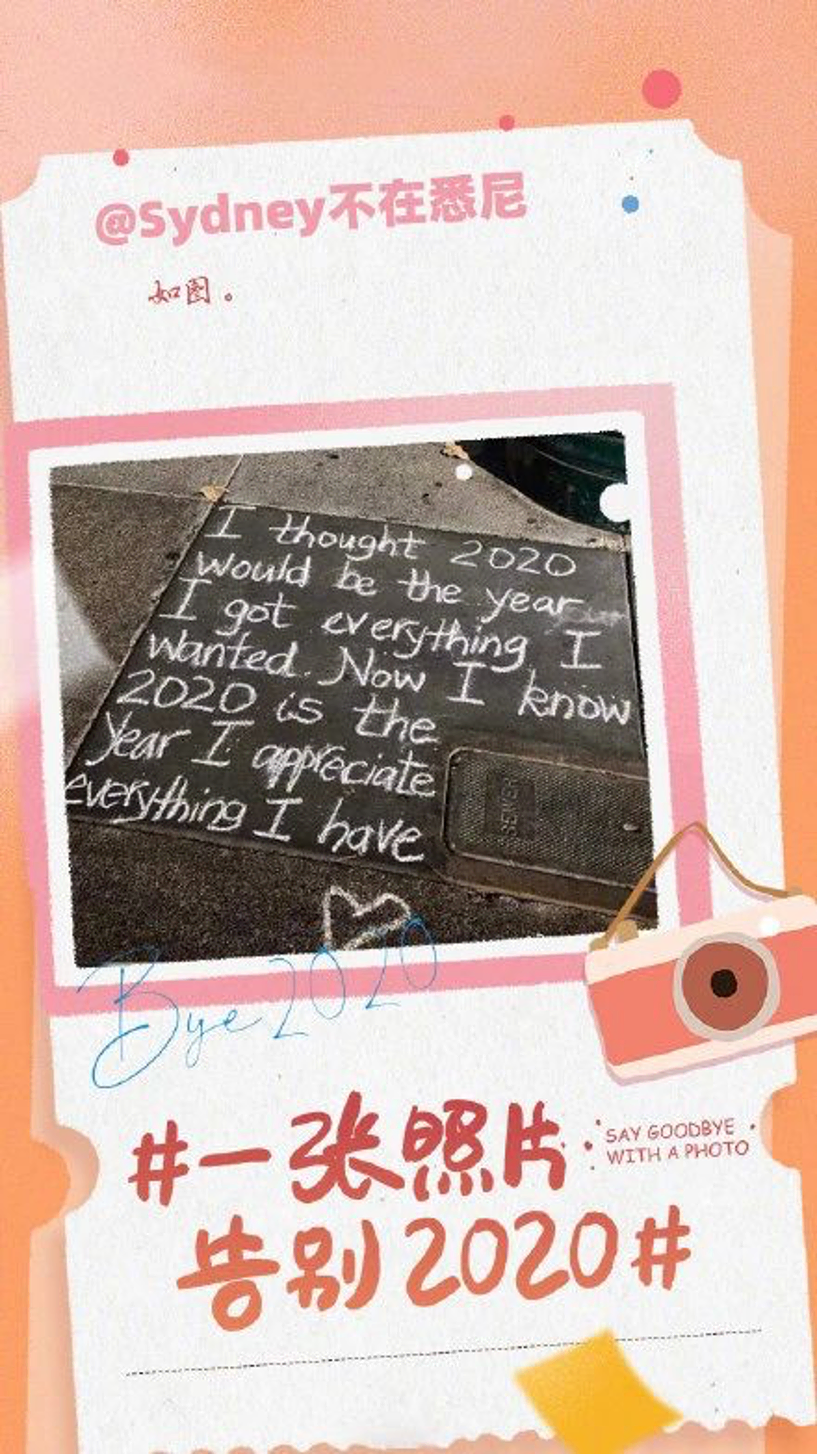 @Sydney不在悉尼
如图。
I thought 2020
would be the year
I got everything I
wanted. Now I know
2020 is the
year I appreciate
everything I have
SEWER
Bye 2020
#一张照片
SAY GOODBYE
WITH A PHOTO
告别2020#